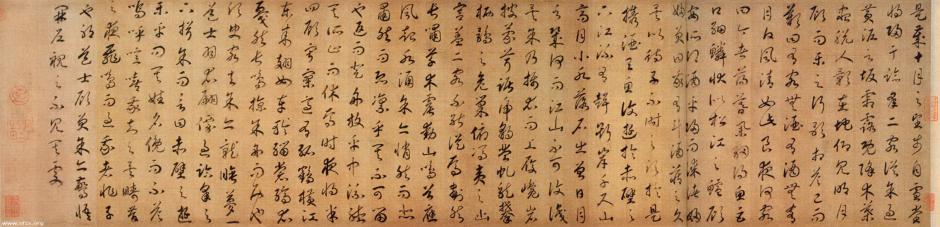 是歲十月之望步自雪堂
將歸于臨皋二客從予過
黃泥之坂霜露既降木葉
盡脫人影在地仰見明月
顧而樂之行歌相答已而
歎曰有客無酒有酒無肴
月白風清如此良夜何客
曰今者薄暮舉網得魚巨
口細鱗狀似松江之鱸顧
安所得酒乎歸而謀諸婦
婦曰我有斗酒藏之久
矣以待子不時之須於是
攜酒與魚復遊於赤壁之
下江流有聲斷岸千尺山
高月小水落石出曾日月
之幾何而江山不可復識
矣予乃攝衣而上履巉岩
披蒙茸踞虎豹登虬龍攀
棲鶻之危巢俯馮夷之幽
宮蓋二客不能從焉劃然
長嘯草木震動山鳴谷應
風起水涌予亦悄然而悲
肅然而恐凜乎其不可留
也反而登舟放乎中流聽
其所止而休焉時夜將半
四顧寂寥適有孤鶴橫江
東來翅如車輪玄裳縞衣
戛然長鳴掠予舟而西也
須臾客去予亦就睡夢一
道士羽衣翩僊過臨皋之
下揖予而言曰赤壁之遊
樂乎問其姓名俛而不答
嗚呼噫嘻我知之矣疇昔
之夜飛鳴而過我者非子
也耶道士顧笑予亦驚悟
開戶視之不見其處